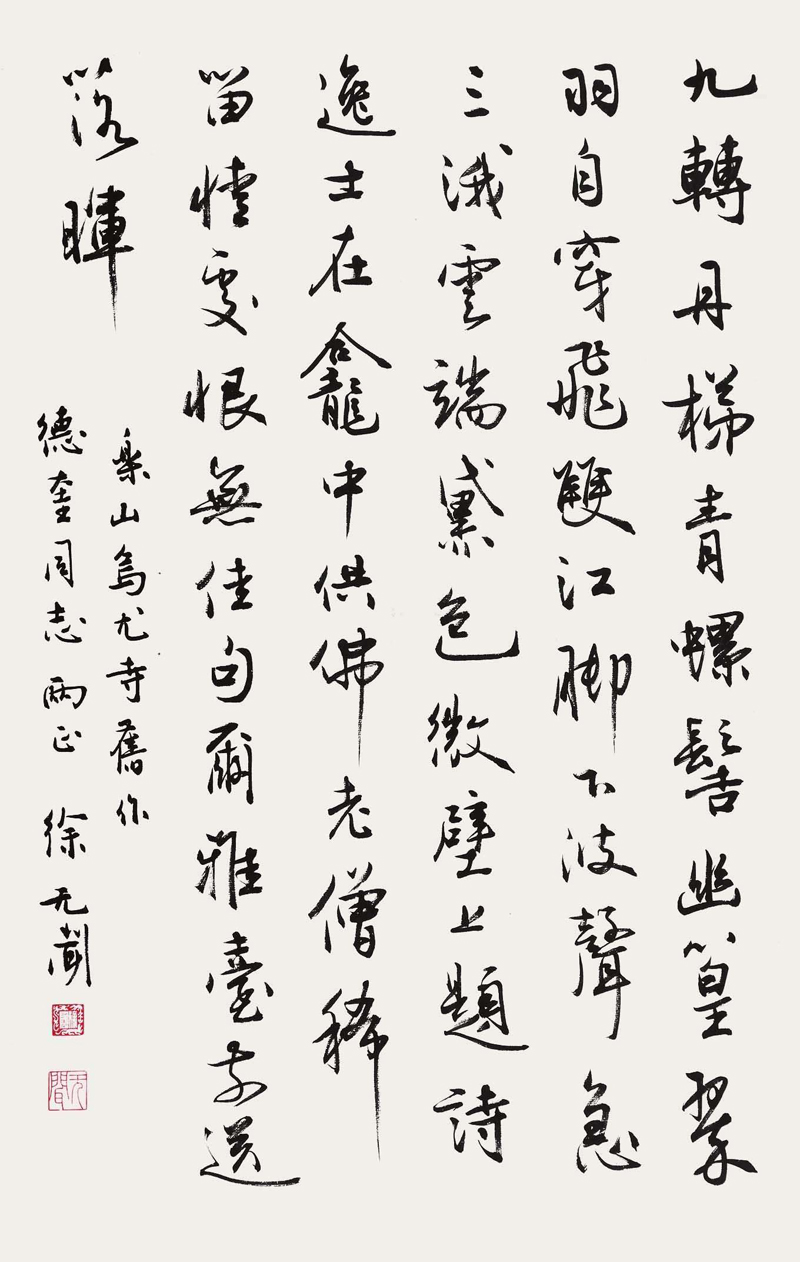 九轉丹梯青螺髻幽篁翠
羽自穿飛雙江脚下波聲急
三涐雲端黛色微壁上題詩
逸士在龕中供佛老僧稀
留情處恨無佳句爾雅臺前送
落暉
樂山烏尤寺舊作
德奎同志兩正 徐无聞
无聞